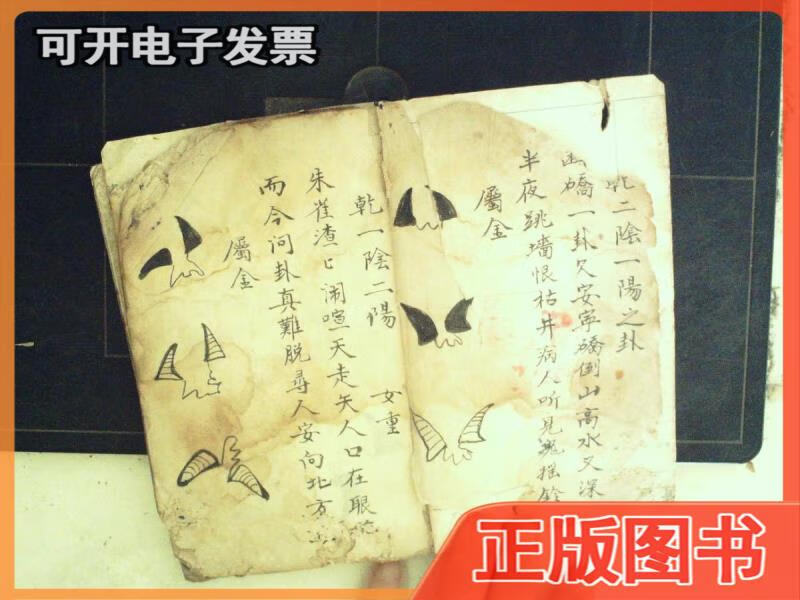 可开电子发票
乾二陰一陽之卦
一卦欠安寧 倒山高水又深
半夜跳墙恨枯井病人听見 摇
屬金
乾一陰二陽 女重
朱雀渣匕闹喧天走矢人口在眼
而今问卦真難脱尋人安向北方
屬金
正版图书